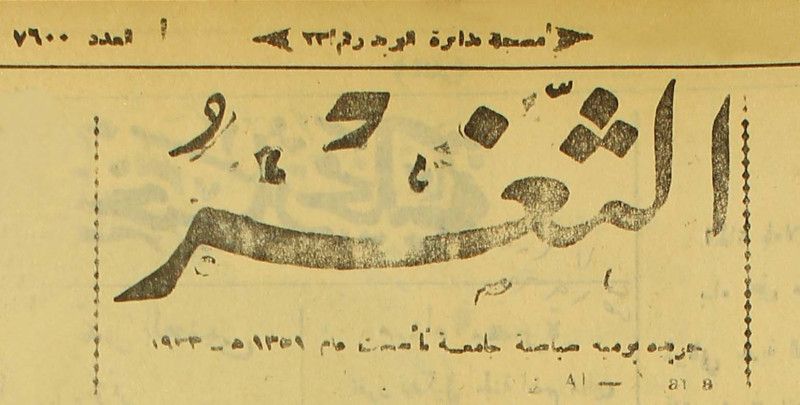 مسجلة بدائرة البريد رقم العدد ٧٦٠٠
الثغر
جريدة يومية سياسية جامعة تأسست عام ١٣٥١ هـ ـ ١٩٣٣
Al —